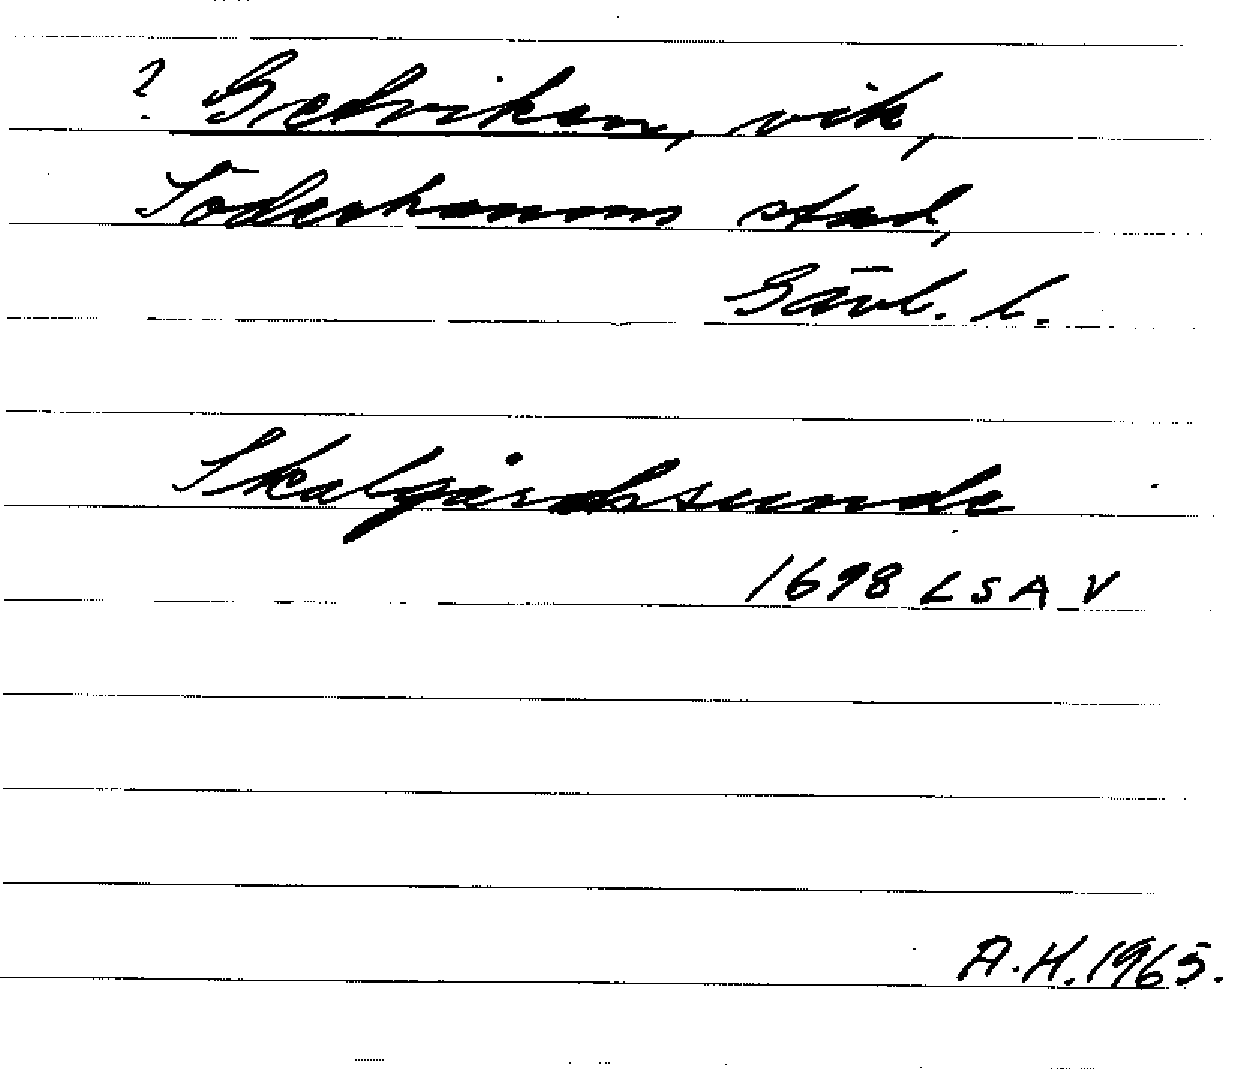 ? Bredviken, vik,
Söderhamns stad,
Gävl. l.
Skalgårdssunde
1698 LSA V
A.H. 1965.